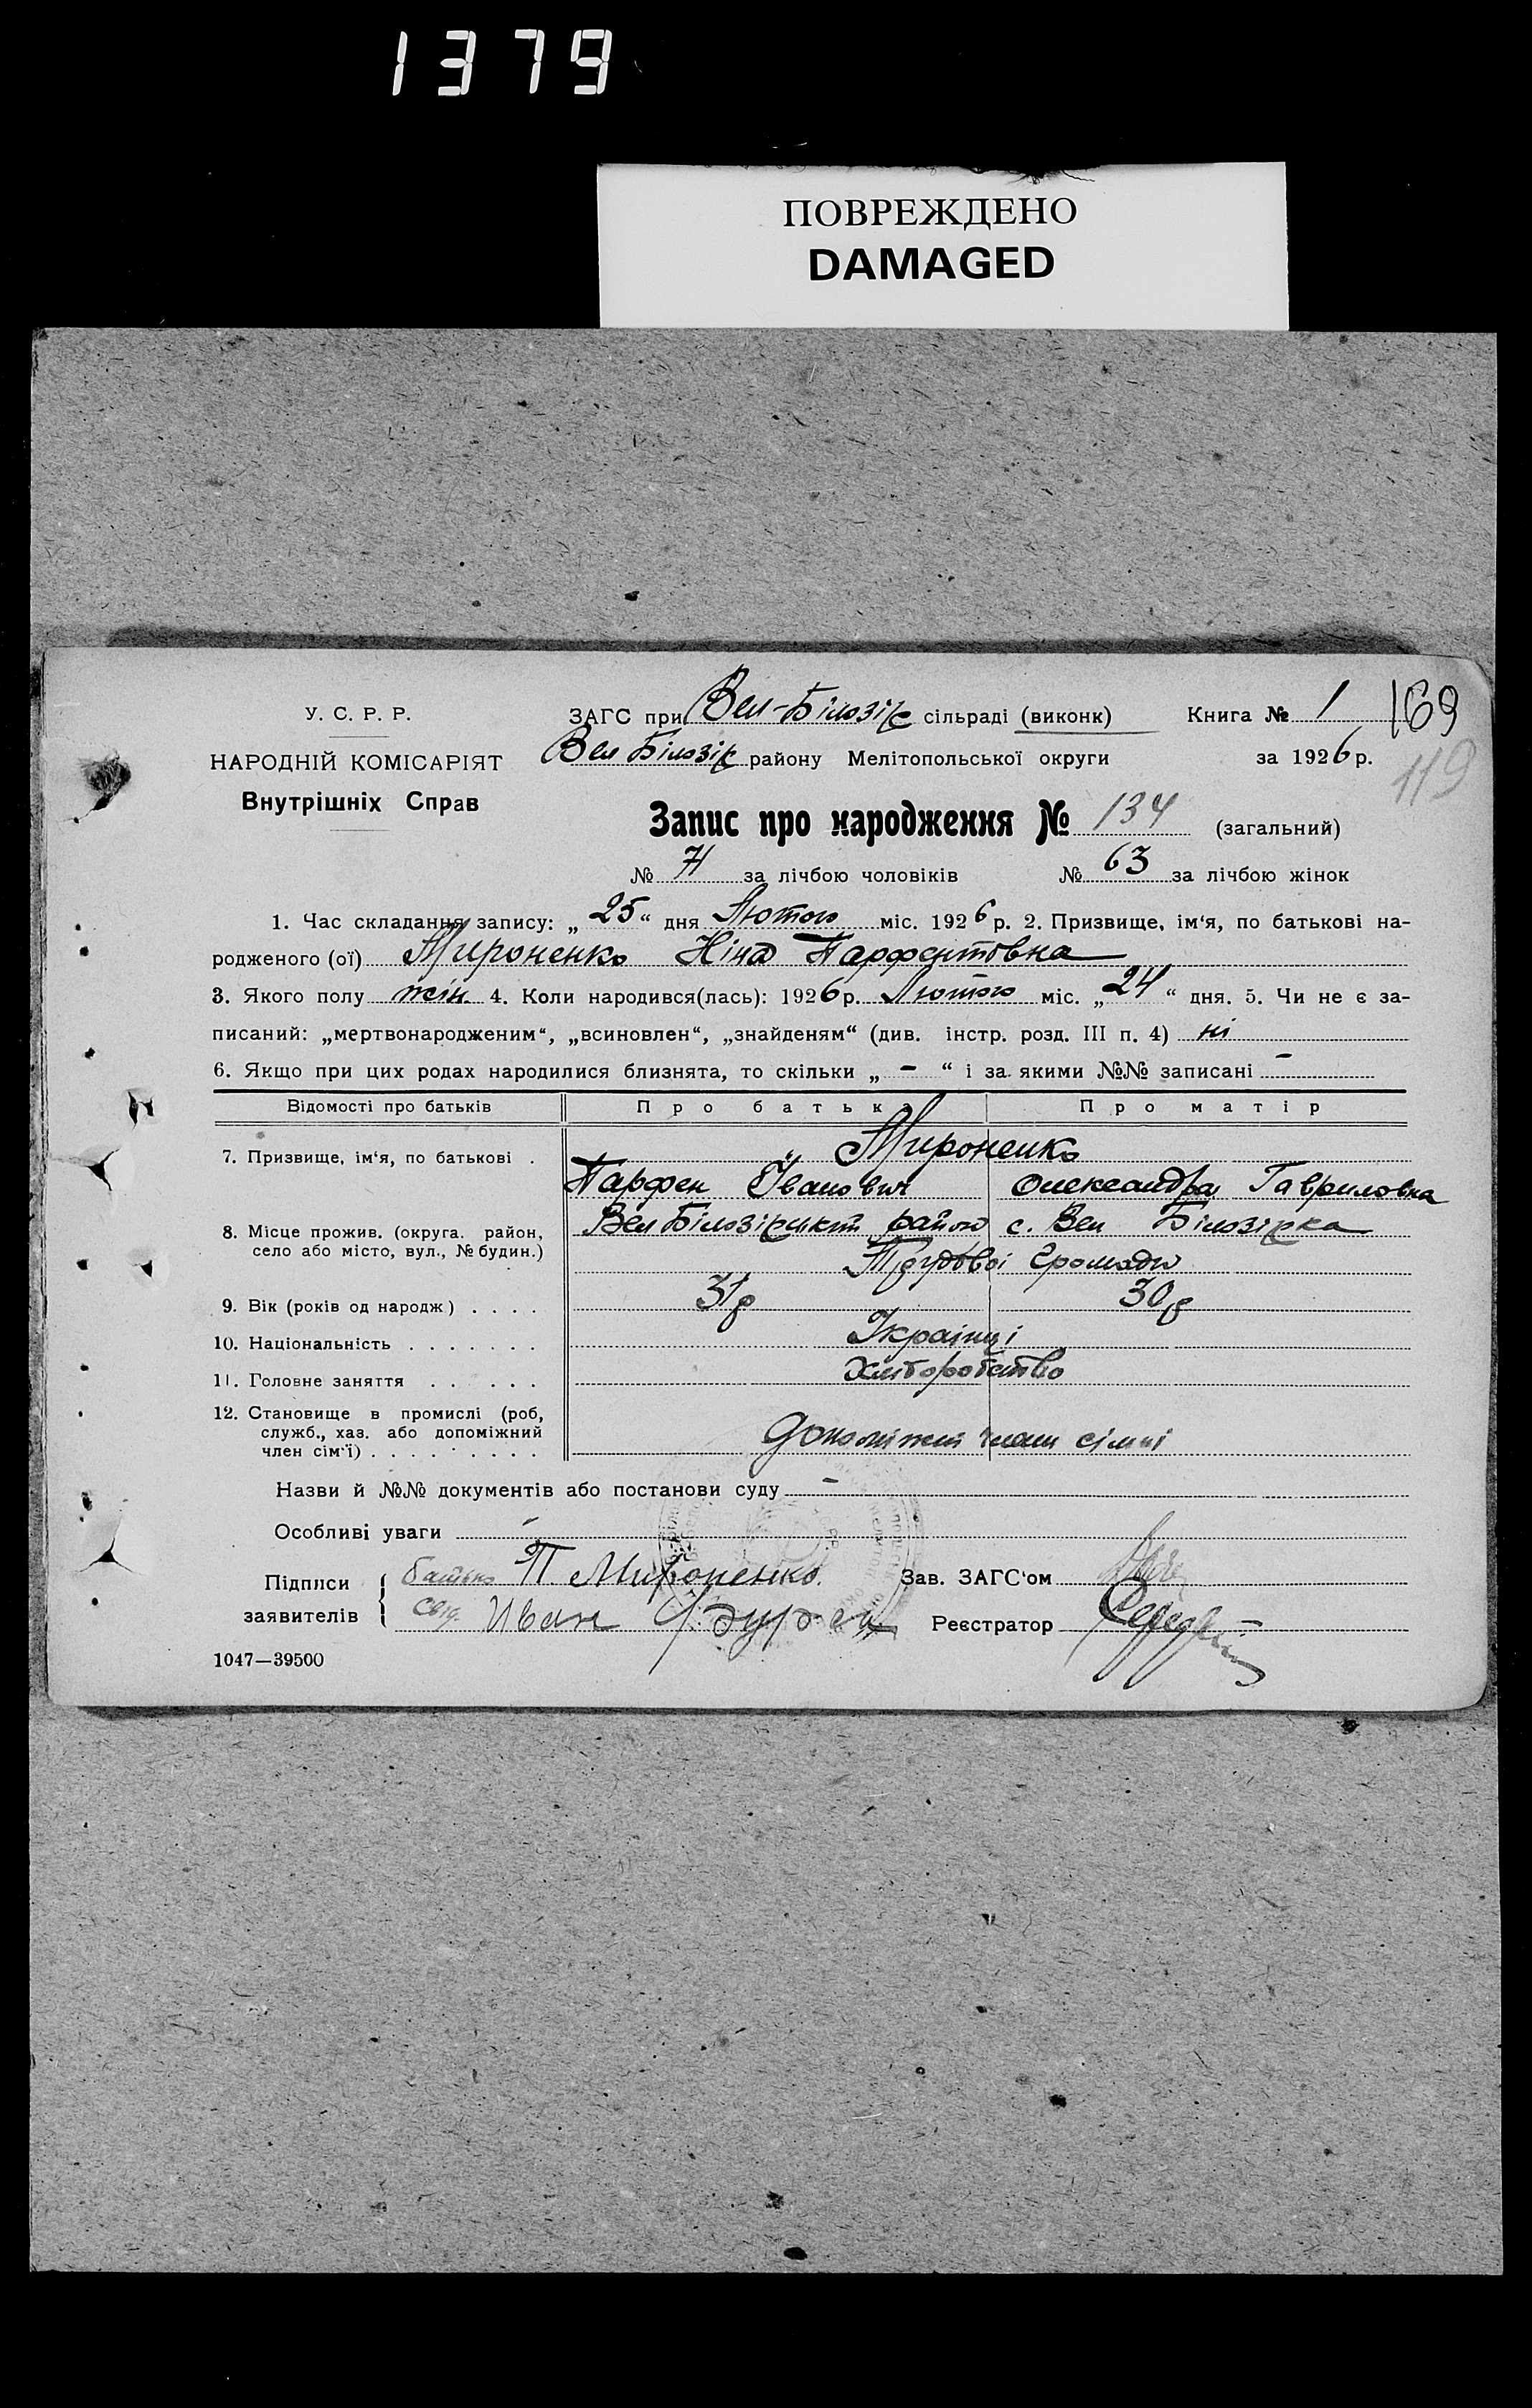 1379
ПОВРЕЖДЕНО
DAMAGED
У. С. Р. Р.
НАРОДНІЙ КОМІСАРІЯТ
Внутрішніх Справ
ЗАГС при Вел-Білозір сільраді (виконк)
Книга № 1
169
Вел Білозір району Мелітопольської округи
за 1926 р.
119
Запис про народження № 134 (загальний)
№ 71 за лічбою чоловіків № 63 за лічбою жінок
1. Час складання запису: „ 25 “ дня Лютого міс. 1926 р. 2. Призвище, ім‘я, по батькові на-
родженого (ої) Мироненко Ніна Парфентовна
3. Якого полу жін. 4. Коли народився(лась): 1926 р. Лютого міс. „ 24 “ дня. 5. Чи не є за-
писаний: „мертвонародженим“, „всиновлен“, „знайденям“ (див. інстр. розд. III п. 4) ні
6. Якщо при цих родах народилися близнята, то скільки „ - “ і за якими №№ записані -
Відомості про батьків Про батька Про матір
7. Призвище, ім‘я, по батькові . Мироненко
Парфен Іванович Олександра Гавриловна
8. Місце прожив. (округа. район, село або місто, вул., № будин.)
Вел Білозірськ район с. Вел Білозірка
Трудової Громади
9. Вік (років од народж) . . . . 31 р 30 р
10. Національність . . . . . . . Українці
11. Головне заняття . . . . . . Хліборобство
12. Становище в промислі (роб,
служб., хаз. або допоміжний
член сім‘ї) . . . . . . . . . допоміжні члени сімні
Назви й №№ документів або постанови суду -
Особливі уваги -
Підписи
заявителів
батько П. Мироненко.
свід. Иван
Зав. ЗАГС‘ом
Реєстратор
1047—39500